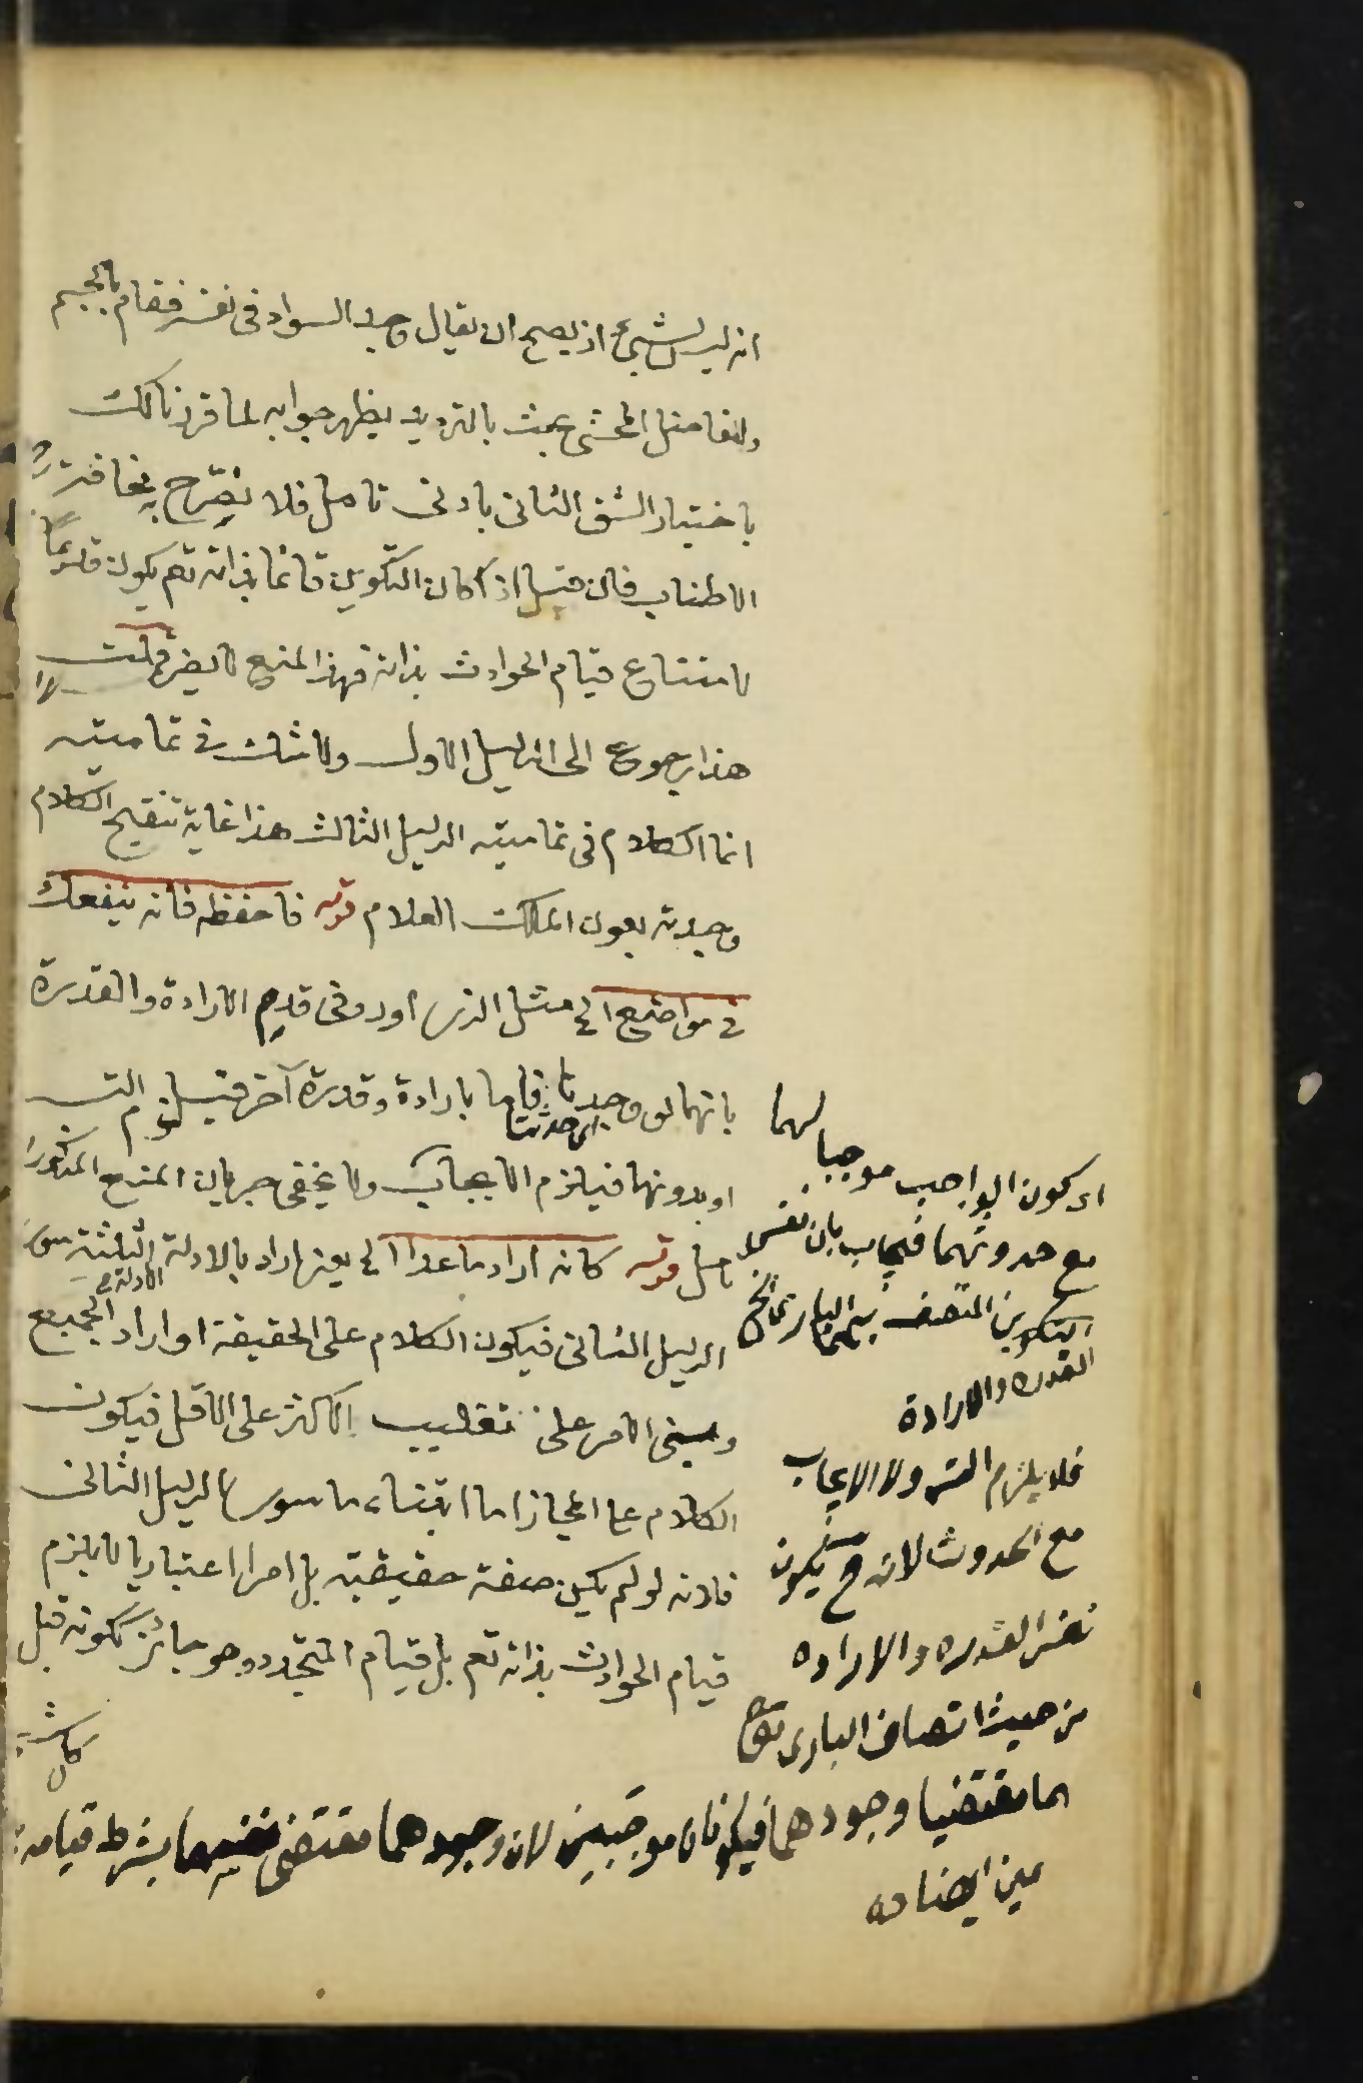 انه ليس لشيئ اذ يصح ان يقال وجد السواد فى نفسه فقام بالجسم
وللفاضل المحشى بحث بالترديد يظهر جوابه لما قررنا لك
باختيار الشق الثانى بادنى تامل فلا نصرح به مخافة
الاطناب فان قيل اذا كان التكوين قائما بذاته تع يكون قديما
لامتناع قيام الحوادث بذاته فهذا المنع لا يضر قلت
هذا رجوع الى الدليل الاول ولا شك فى تماميته
انما الكلام فى تمامية الدليل الثالث هذا غاية تنقيح الكلام
وجدته بعون الملك العلام قوله فاحفظه فانه ينفعك
فى مواضع الخ مثل الذى اورد فى قدم الارادة والقدرة
بانهما لو وجدتا فاما بارادة وقدرة آخر فيلزم التس
اى حدثتا
او بدونهما فيلزم الايجاب ولا يخفى جريان المنع المذكور
تامل قوله كانه اراد ما عدا الخ يعنى اراد بالادلة الثلثة سوى
الادلة
الدليل الثانى فيكون الكلام على الحقيقة او اراد الجميع
ومبنى الامر على تغليب الاكثر على الاقل فيكون
الكلام على المجاز اما ابتناء ما سوى الدليل الثانى
فلانه لو لم يكن صفة حقيقية بل امرا اعتباريا لا يلزم
قيام الحوادث بذاته تع بل قيام المتجدد وهو جائز ككونه قبل
كل شئ
اى كون الواجب موجبا لهما
مع حدوثهما فيجاب بان نفس
التكوين المتصف بهما البارى تع
القدرة والارادة
فلا يلزم التس ولا الايجاب
مع الحدوث لانه ح يكون
نفس القدرة والارادة
من حيث اتصاف البارى تع
بهما مقتضيا وجودهما فيكونان موجبين لان وجودهما مقتضى نفسهما بشرط قيامه